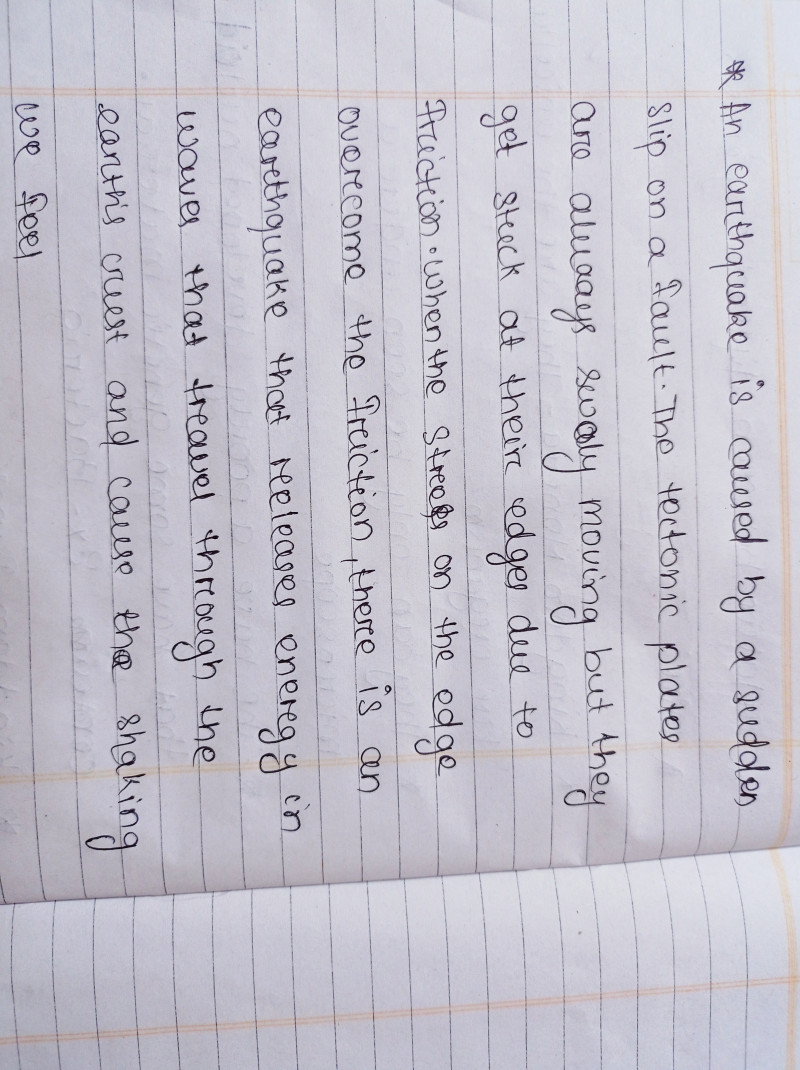 * An earthquake is caused by a sudden
slip on a fault. The tectonic plates
are always swoly moving but they
get stuck at their edges due to
friction. When the stress on the edge
overcome the friction, there is an
earthquake that releases energy in
waves that travel through the
earth's crust and cause the shaking
we feel